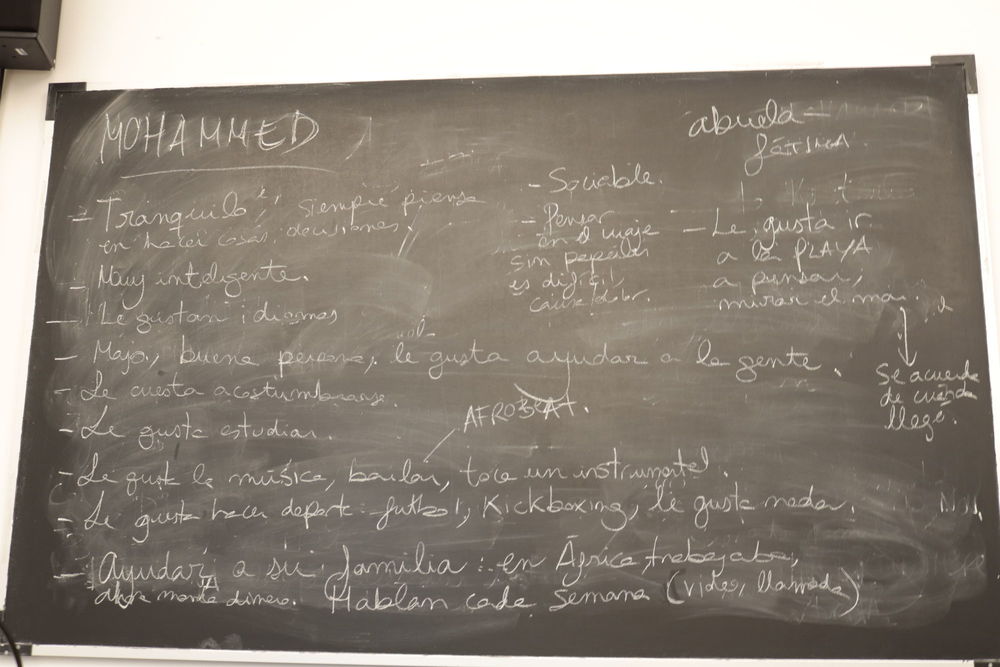 MOHAMMED
abuela
FÁTIMA
- Tranquilo, siempre piensa
en hacer cosas, decisiones.
- Muy inteligente.
- Le gustan idiomas
- Majo, buena persona, le gusta ayudar a la gente.
- Le cuesta acostumbrarse.
- Le gusta estudiar.
AFROBEAT.
- Le gusta la música, bailar, toca un instrumento.
- Le gusta hacer deporte: futbol, Kickboxing, le gusta nadar.
- Ayudar a su familia: en África trabajaba,
ahora manda dinero. Hablan cada semana (video, llamada)
- Sociable.
- Pensar
en el viaje
sin papeles
es difícil,
causa dolor.
- Le gusta ir
a la PLAYA
a pensar,
mirar el mar.
Se acuerda
de cuando
llegó.